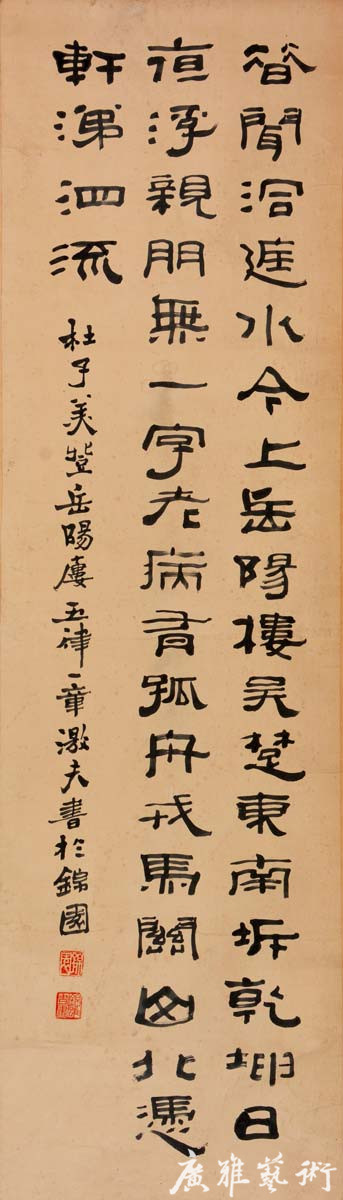 昔聞洞庭水今上岳陽樓吳楚東南坼乾坤日
夜浮親朋無一字老病有孤舟戎馬關山北憑
軒涕泗流
杜子美登岳陽樓五律一章夫書於錦國
廣雅藝術